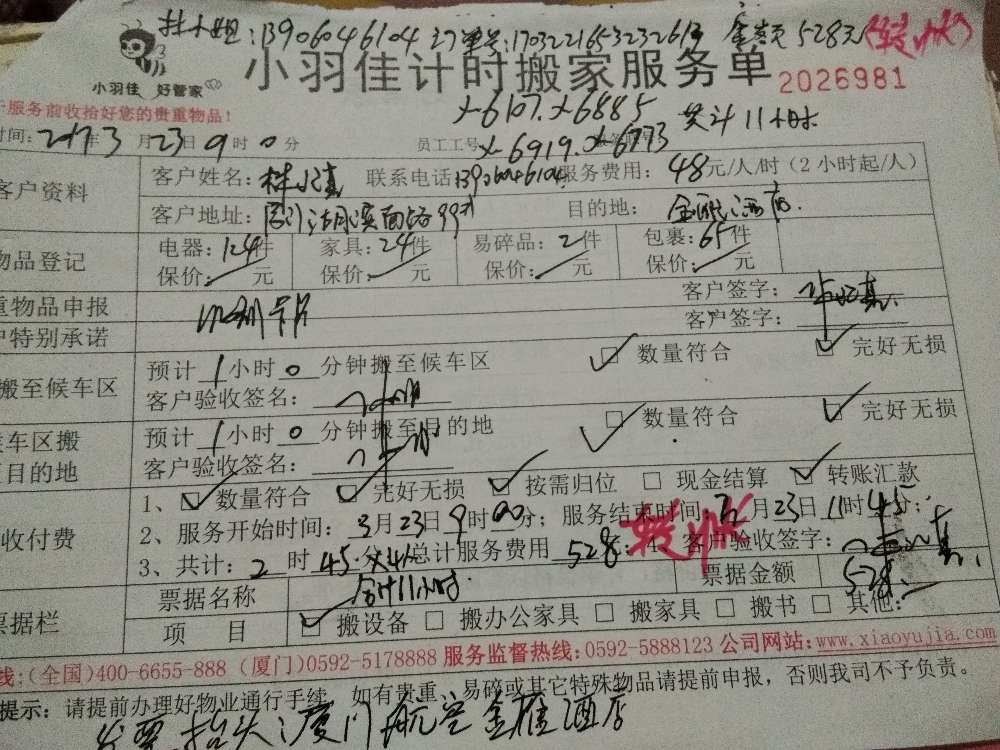 林小姐:13906046104 订单号:17032216532326 金额 528元 (转账)
小羽佳 好管家
小羽佳计时搬家服务单 2026981
服务前收拾好您的贵重物品!
X-6107. X-6885
共计11小时
时间: 2017年3月23日9时0分 员工工号 X-6919. X-6773
客户资料 客户姓名: 联系电话:13906046104 服务费用: 48元/人/时(2小时起/人)
客户地址: 99 目的地: 酒店
物品登记 电器:124件 家具:24件 易碎品:2件 包裹:65件
保价: 元 保价: 元 保价: 元 保价: 元
重物品申报 客户签字:
户特别承诺 客户签字:
搬至候车区 预计1小时0分钟搬至候车区 数量符合 完好无损
客户验收签名:
车区搬 预计1小时0分钟搬至目的地 数量符合 完好无损
目的地 客户验收签名:
收付费 1、数量符合 完好无损 按需归位 现金结算 转账汇款
2、服务开始时间:3月23日9时00分;服务结束时间: 月23日11时45分;
转账
3、共计:2时45分X4人 总计服务费用528 客户验收签字:
票据栏 票据名称 合计11小时 票据金额 528
项 目 搬设备 搬办公家具 搬家具 搬书 其他:
线:(全国)400-6655-888 (厦门)0592-5178888 服务监督热线:0592-5888123 公司网站:www.xiaoyujia.com
提示: 请提前办理好物业通行手续,如有贵重、易碎或其它特殊物品请提前申报,否则我司不予负责。
发票抬头:厦门航空金雁酒店